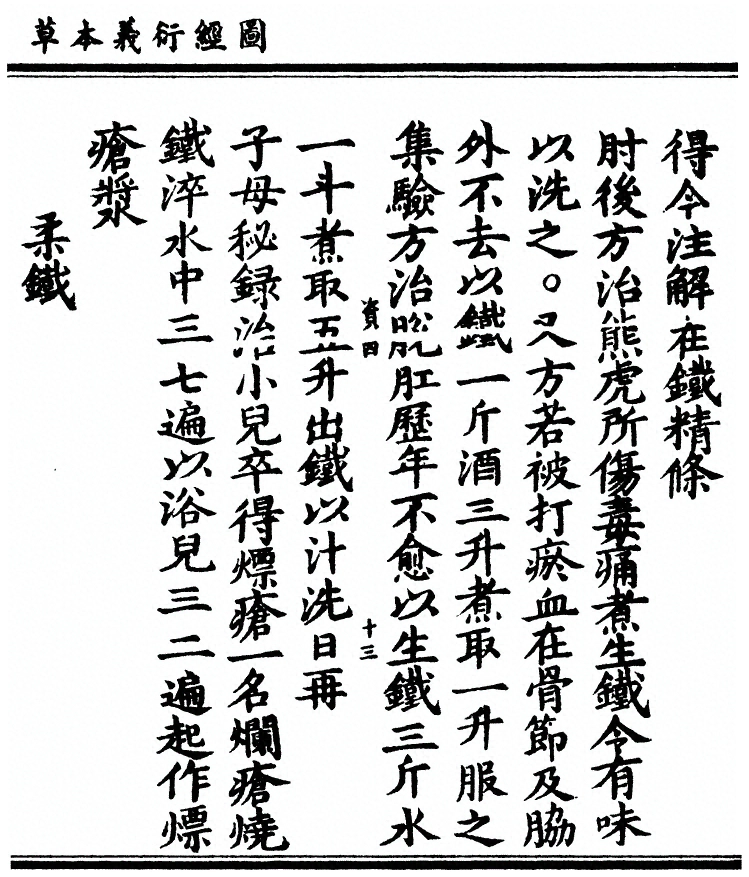 圖經衍義本草
得今注解在鐵精條
肘後方治熊虎所傷毒痛煮生鐵令有味
以洗之○又方若被打瘀血在骨節及脇
外不去以鐵一斤酒三升煮取一升服之
集驗方治脫肛歷年不愈以生鐵三斤水
資四 十三
一斗煮取五升出鐵以汁洗日再
子母秘録治小兒卒得熛瘡一名爛瘡燒
鐵淬水中三七遍以浴兒三二遍起作熛
瘡漿
柔鐵